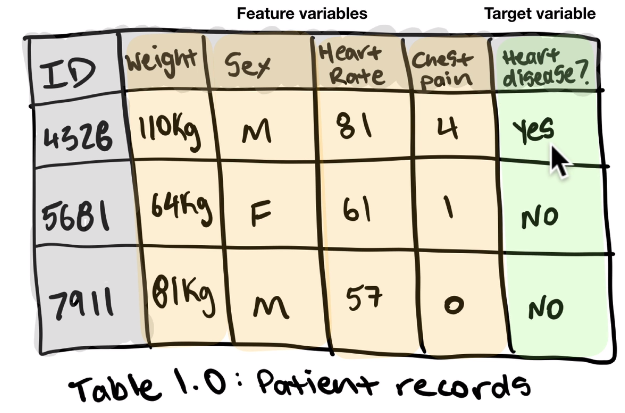 Feature variables Target variable
ID Weight Sex Heart Rate Chest pain Heart disease?
4326 110Kg M 81 4 yes
5681 64Kg F 61 1 NO
7911 81Kg M 57 0 NO
Table 1.0: Patient records